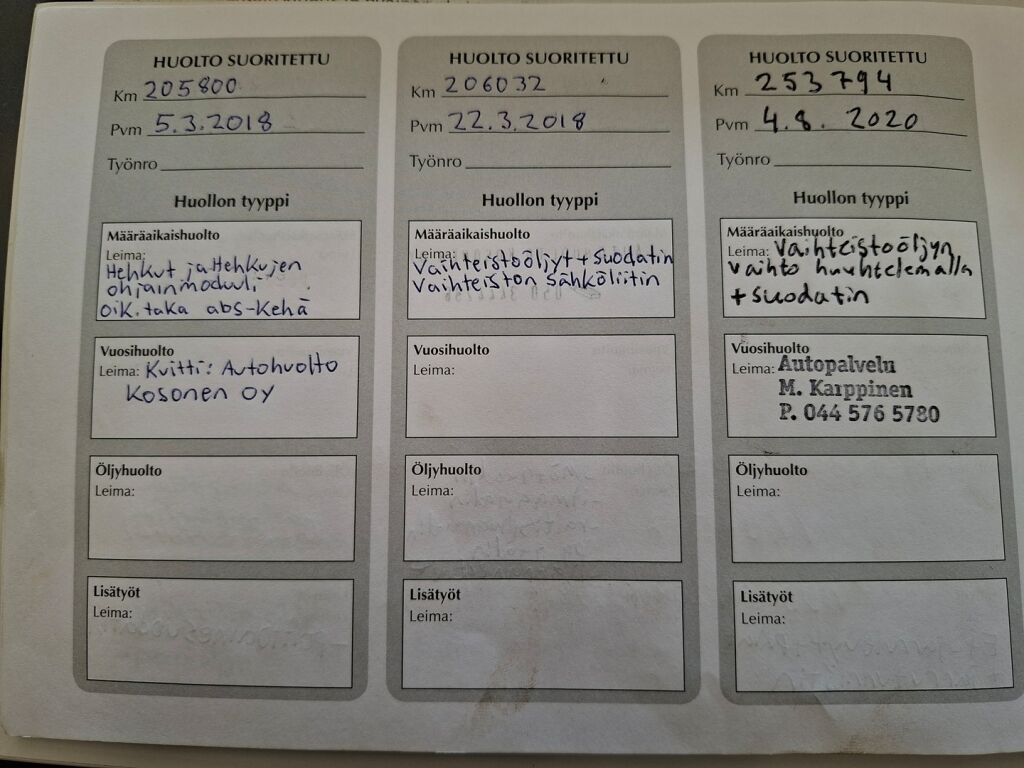 HUOLTO SUORITETTU
Km 205800
Pvm 5.3.2018
Työnro
Huollon tyyppi
Määräaikaishuolto
Leima:
Hehkut ja Hehkujen
ohjainmoduli
oik.taka abs-Kehä
Vuosihuolto
Leima: Kvitti: Autohuolto
Kosonen oy
Öljyhuolto
Leima:
Lisätyöt
Leima:
HUOLTO SUORITETTU
Km 206032
Pvm 22.3.2018
Työnro
Huollon tyyppi
Määräaikaishuolto
Leima:
Vaihteistoöljyt + suodatin
Vaihteiston sähköliitin
Vuosihuolto
Leima:
Öljyhuolto
Leima:
Lisätyöt
Leima:
HUOLTO SUORITETTU
Km 253794
Pvm 4.8. 2020
Työnro
Huollon tyyppi
Määräaikaishuolto
Leima: Vaihteistoöljyn
vaihto huuhtelemalla
+ suodatin
Vuosihuolto
Leima: Autopalvelu
M. Karppinen
P. 044 576 5780
Öljyhuolto
Leima:
Lisätyöt
Leima: